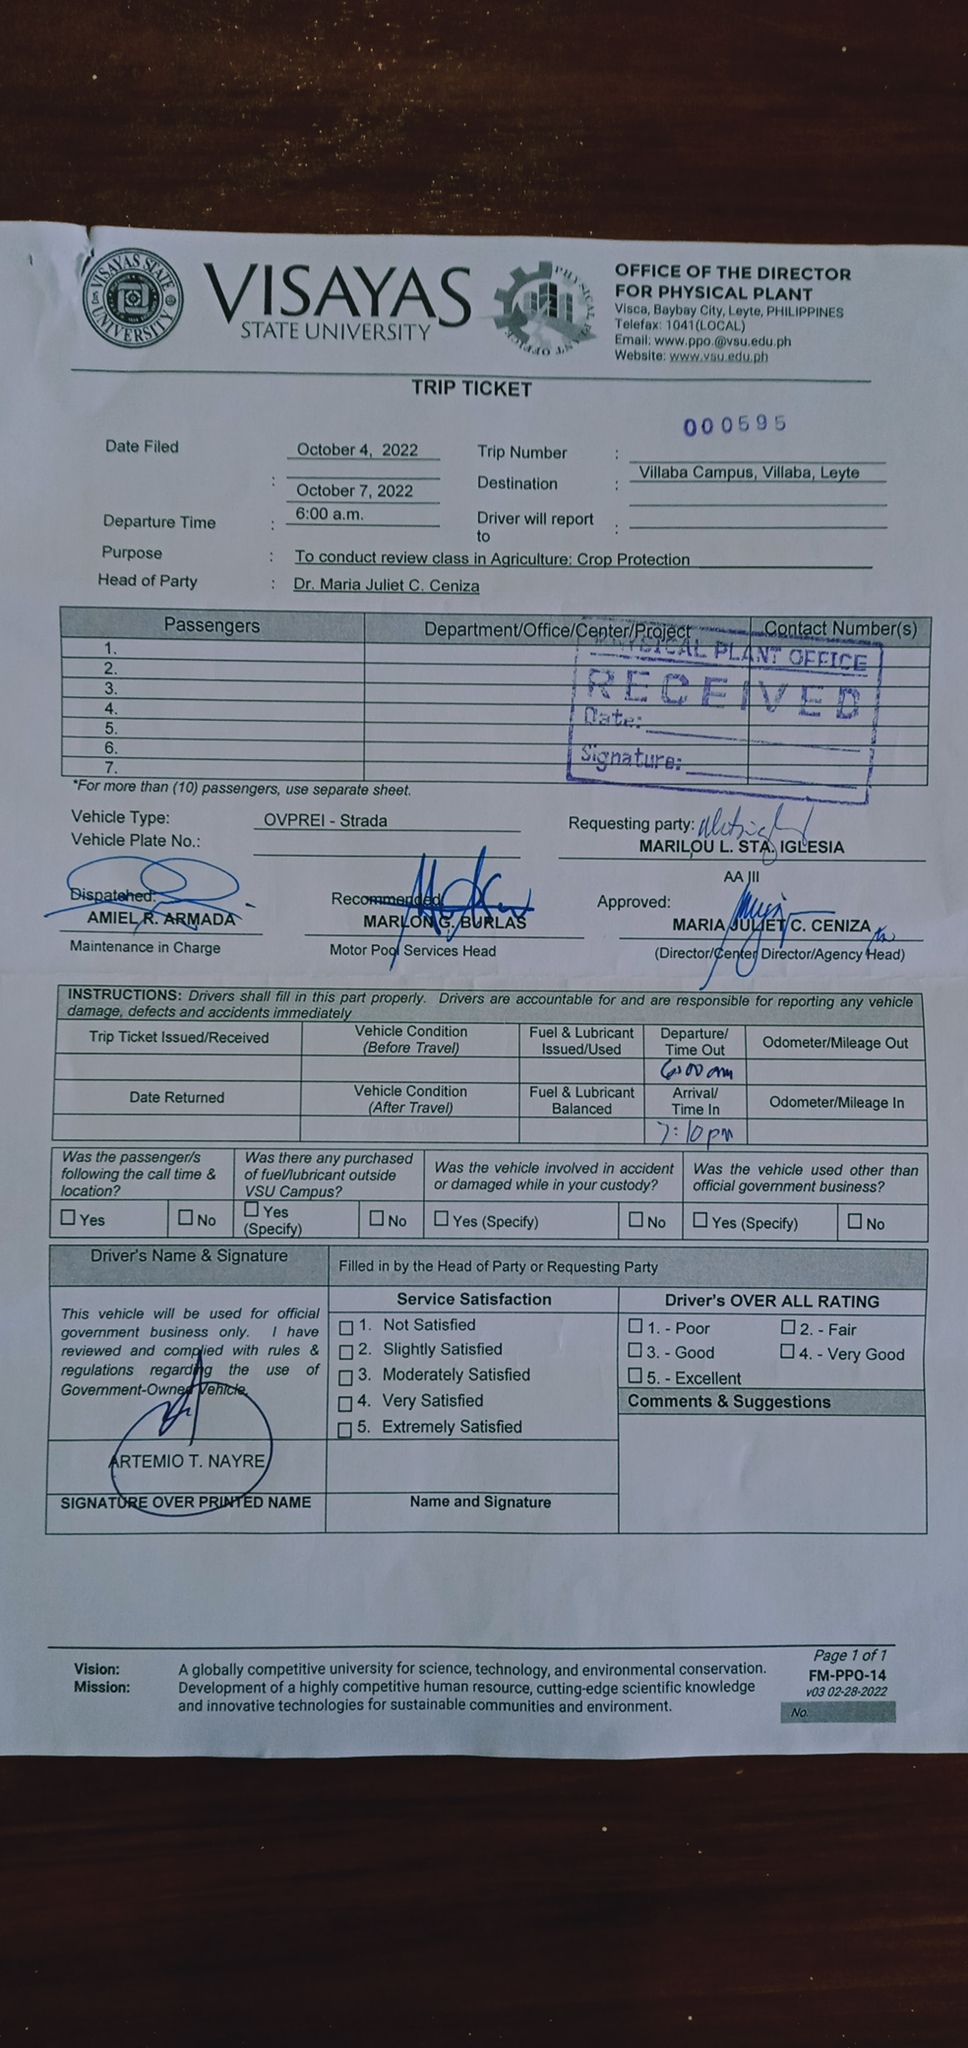 VISAYAS STATE UNIVERSITY
VISAYAS
STATE UNIVERSITY
PHYSICAL PLANT OFFICE
OFFICE OF THE DIRECTOR
FOR PHYSICAL PLANT
Visca, Baybay City, Leyte, PHILIPPINES
Telefax: 1041(LOCAL)
Email: www.ppo.@vsu.edu.ph
Website: www.vsu.edu.ph
TRIP TICKET
000595
Date Filed October 4, 2022 Trip Number :
: October 7, 2022 Destination : Villaba Campus, Villaba, Leyte
Departure Time : 6:00 a.m. Driver will report to :
Purpose : To conduct review class in Agriculture: Crop Protection
Head of Party : Dr. Maria Juliet C. Ceniza
Passengers Department/Office/Center/Project Contact Number(s)
1.
2.
3.
4.
5.
6.
7.
PHYSICAL PLANT OFFICE
RECEIVED
Date:
Signature:
*For more than (10) passengers, use separate sheet.
Vehicle Type: OVPREI - Strada Requesting party:
Vehicle Plate No.: MARILOU L. STA. IGLESIA
AA III
Dispatched: Recommended: Approved:
AMIEL R. ARMADA MARLON G. BURLAS MARIA JULIET C. CENIZA
Maintenance in Charge Motor Pool Services Head (Director/Center Director/Agency Head)
INSTRUCTIONS: Drivers shall fill in this part properly. Drivers are accountable for and are responsible for reporting any vehicle
damage, defects and accidents immediately
Trip Ticket Issued/Received Vehicle Condition (Before Travel) Fuel & Lubricant Issued/Used Departure/ Time Out Odometer/Mileage Out
6:00 am
Date Returned Vehicle Condition (After Travel) Fuel & Lubricant Balanced Arrival/ Time In Odometer/Mileage In
7:10 pm
Was the passenger/s following the call time & location? Was there any purchased of fuel/lubricant outside VSU Campus? Was the vehicle involved in accident or damaged while in your custody? Was the vehicle used other than official government business?
Yes No Yes (Specify) No Yes (Specify) No Yes (Specify) No
Driver's Name & Signature Filled in by the Head of Party or Requesting Party
This vehicle will be used for official
government business only. I have
reviewed and complied with rules &
regulations regarding the use of
Government-Owned Vehicle.
ARTEMIO T. NAYRE
SIGNATURE OVER PRINTED NAME
Service Satisfaction
1. Not Satisfied
2. Slightly Satisfied
3. Moderately Satisfied
4. Very Satisfied
5. Extremely Satisfied
Name and Signature
Driver's OVER ALL RATING
1. - Poor 2. - Fair
3. - Good 4. - Very Good
5. - Excellent
Comments & Suggestions
Vision: A globally competitive university for science, technology, and environmental conservation.
Mission: Development of a highly competitive human resource, cutting-edge scientific knowledge
and innovative technologies for sustainable communities and environment.
Page 1 of 1
FM-PPO-14
v03 02-28-2022
No.